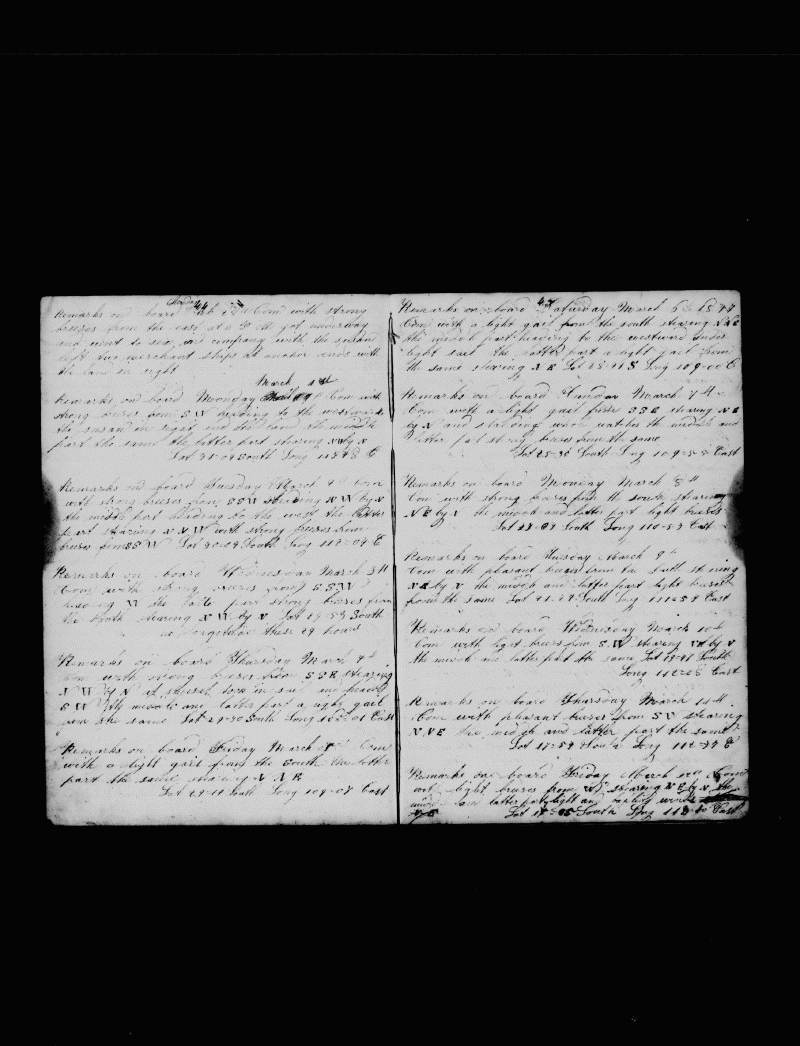 44
Remarks on board Com with strong
breezes from the east at 2 P M got underway
and went to sea in company with the susan
left two merchant ships at anchor ends with
the land in sight
March 1st
Remarks on board Monday Com with
strong breeses from S W heading to the westward
the susan in sight and the land the middle
part the same the latter part stearing NW by N
Lat 31-04 South Long 112-48 E
Remarks on board Tuesday March 2nd Com
with strong breeses from SSW stearing NW by N
the middle part heading to the west the latter
part stearing N N W with strong breeses from
breeses from SSW Lat 30-04 South Long 112-04 E
Remarks on board Wednesday March 3d
Com with strong breeses from S S W
heading W the latter part strong breeses from
the South stearing N W by N Lat 29-53 South
no longitude these 24 hours
Remarks on board Thursday March 4th
Com with strong breeses from S S E stearing
N W by N at sunset took in sail and headed
S W the middle and latter part a light gail
from the same Lat 29-40 South Long East
Remarks on board Friday March 5th Com
with a light gail from the South the latter
part the same stearing N N E
Lat South Long 109-07 East
45
Remarks on board Saturday March 6
Com with a light gail from the south stearing N N E
the middle part heading to the westward under
light sail the latter part a light gail from
the same stearing N E Lat South Long 109-00 E
Remarks on board Sunday March 7th
Com with a light gail from SSE stearing N E
by N and standing whole watches the middle and
latter part strong breeses from the same
Lat 25-30 South Long 109-55 East
Remarks on board Monday March 8th
Com with strong breeses from the south stearing
N E by N the middle and latter part light breeses
Lat 23-04 South Long 110-53 East
Remarks on board Tuesday March 9th
Com with pleasant breeses from the South stearing
NE by N the middle and latter part light breeses
from the same Lat 21-24 South Long 111-54 East
Remarks on board Wednesday March 10th
Com with light breeses from S W stearing NE by N
the middle and latter part the same Lat South
Long 112-08 East
Remarks on board Thursday March 11th
Com with pleasant breeses from S W stearing
N N E the middle and latter part the same
Lat 17-54 South Long 112-34 E
Remarks on board Friday March 12th Com
with light breeses from stearing N E by N the
middle and latter part light and
Lat South Long East